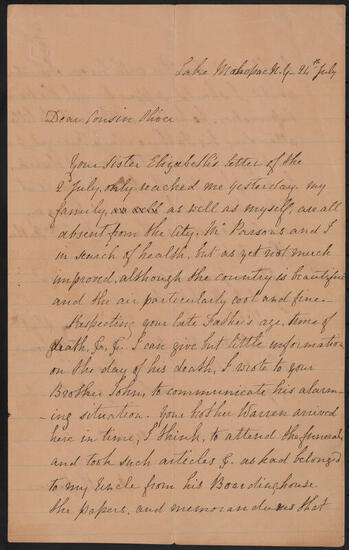 Lake Mahopac N.Y. 24th July
Dear Cousin Oliver
Your sister Elizabeth's letter of the
2d July, only reached me yesterday. my
family, as well as myself, are all
absent from the city, Mr Parsons and I
in search of health, but as yet not much
improved, although the country is beautiful
and the air particularly cool and fine—
Respecting your late Father's age, time of
death, &c, &c. I can give but little information
on the day of his death, I wrote to your
Brother John, to communicate his alarm-
-ing situation. Your brother Warren arrived
here in time, I think, to attend the funeral,
and took such articles &c. as had belonged
to my Uncle from his Boardinghouse
the papers, and memorandums that